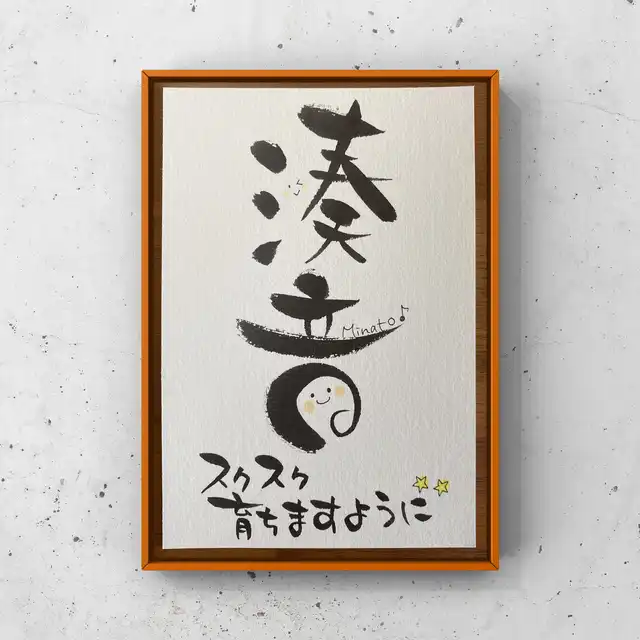 湊音
Minato♪
スクスク
育ちますように